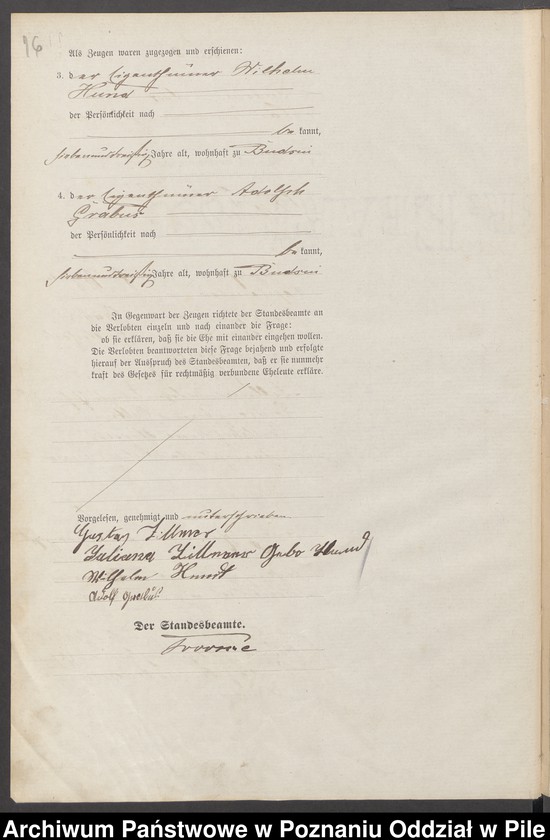 16
Als Zeugen waren zugezogen und erschienen:
3. der Eigenthümer Wilhelm
Hund
der Persönlichkeit nach
bekannt,
siebenunddreißig Jahre alt, wohnhaft zu Budsin
4. der Eigenthümer Adolph
Grabus
der Persönlichkeit nach
bekannt,
siebenunddreißig Jahre alt, wohnhaft zu Budsin
In Gegenwart der Zeugen richtete der Standesbeamte an
die Verlobten einzeln und nach einander die Frage:
ob sie erklären, daß sie die Ehe mit einander eingehen wollen.
Die Verlobten beantworteten diese Frage bejahend und erfolgte
hierauf der Ausspruch des Standesbeamten, daß er sie nunmehr
kraft des Gesetzes für rechtmäßig verbundene Eheleute erkläre.
Vorgelesen, genehmigt und unterschrieben
Gustav Zillmer
Juliana Zillmer Gebo Hund
Wilhelm Hundt
Adolf
Der Standesbeamte.
Archiwum Państwowe w Poznaniu Oddział w Pile